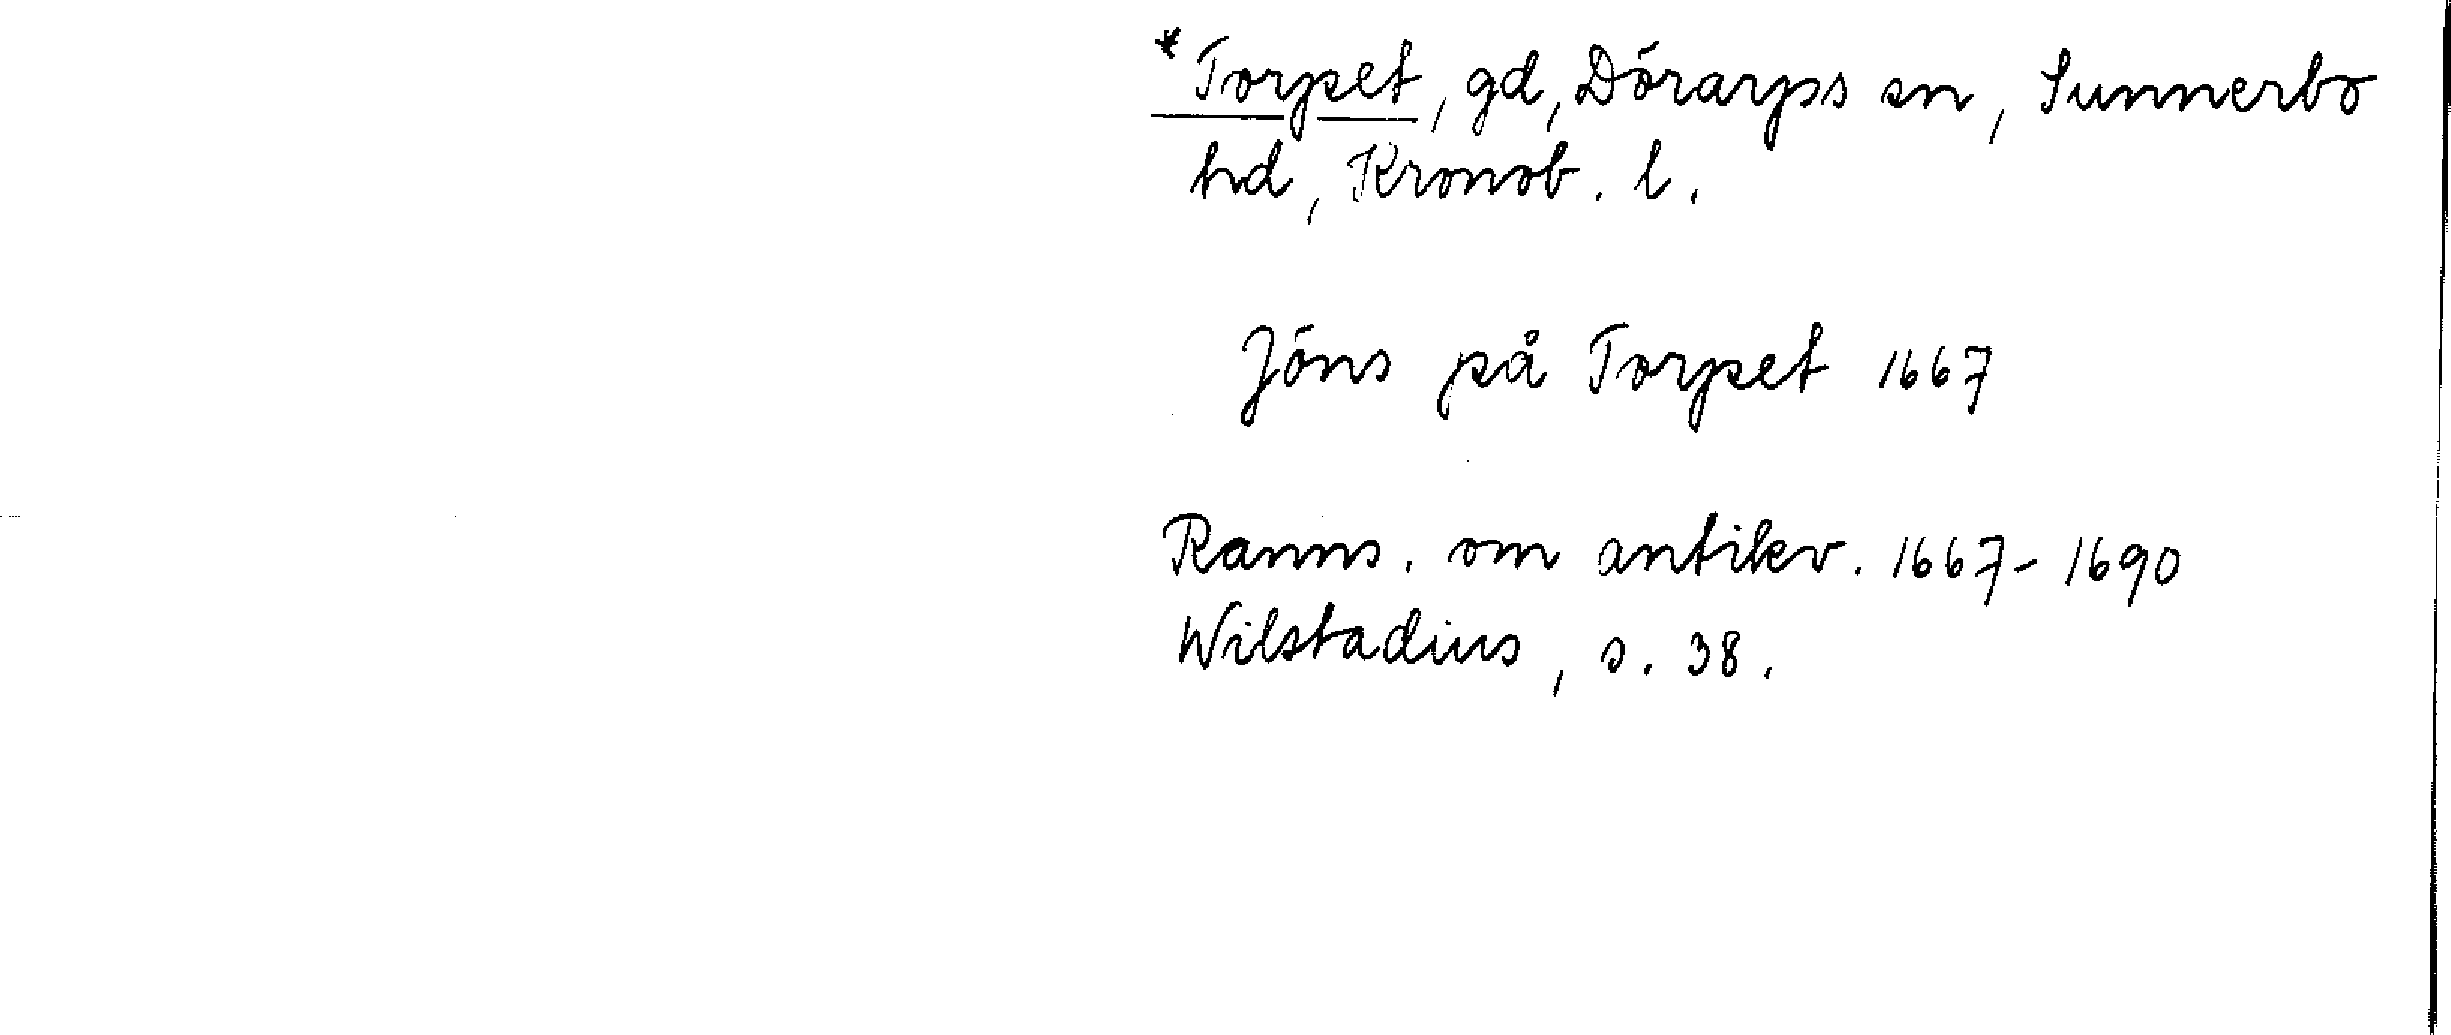 *Torpet, gd, Dörarps sn, Sunnerbo
hd, Kronob. l.
Jöns på Torpet 1667
Ranns. om antikv. 1667-1690
Wilstadius, s. 38.